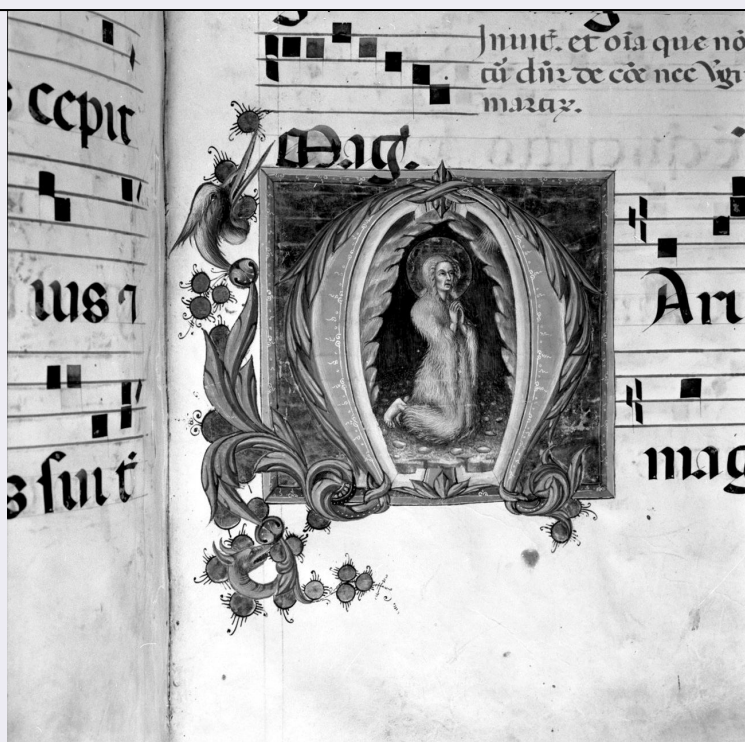 s cepit
ius ⁊
s fuit
Inuit̄. et oīa que nō
cū dn̄r de cōe nec Vgī
martiꝝ.
Maḡ.
M Ari
mag